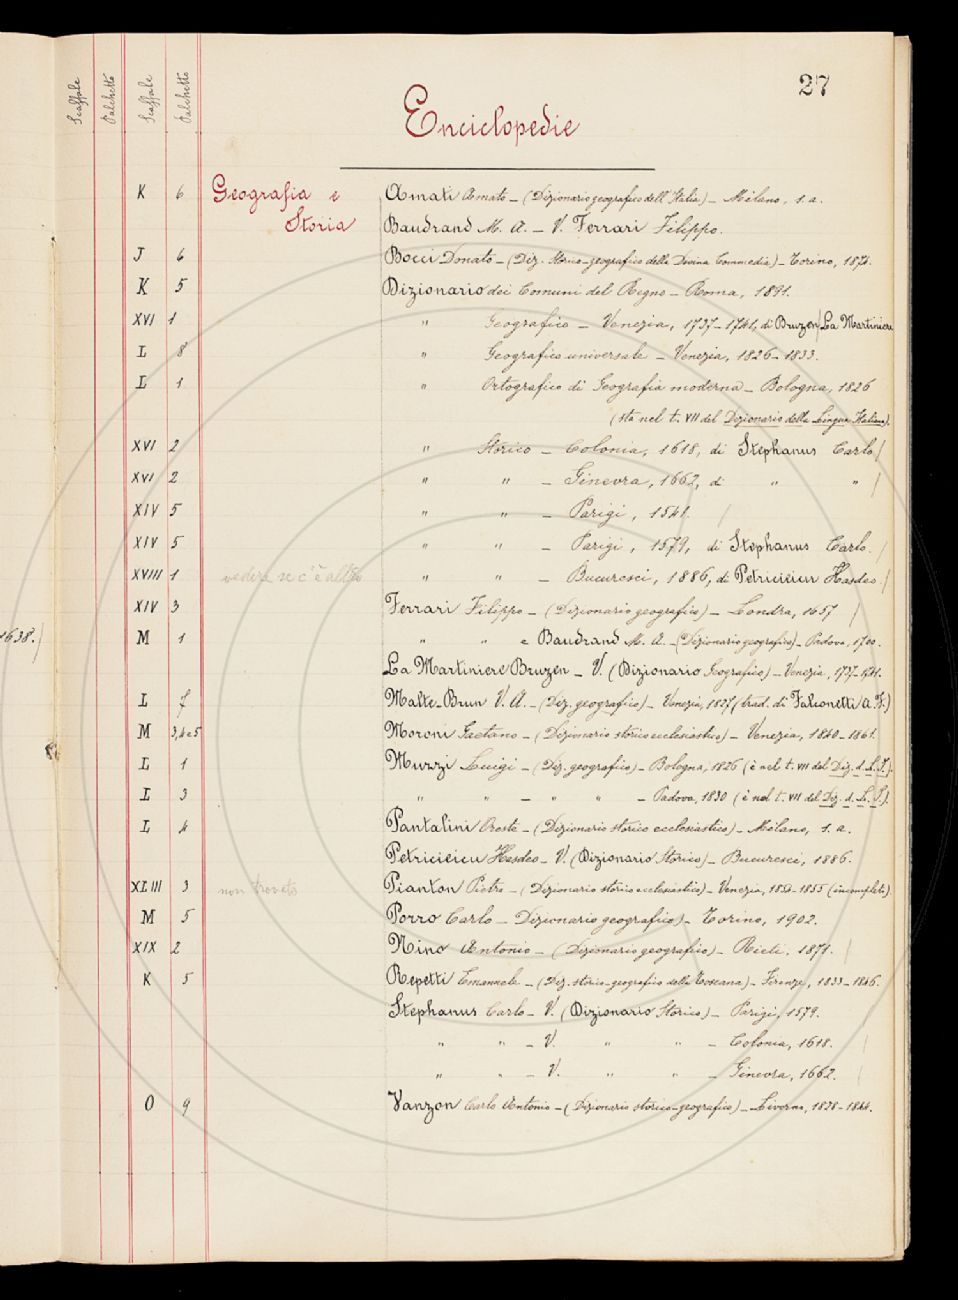 27
Scaffale Palchetto Scaffale Palchetto
Enciclopedie
K 6 Geografia e Amati Amato - (Dizionario geografico dell'Italia) - Milano, s. a.
Storia Baudrand M. A. - V. Ferrari Filippo.
J 6 Bocci Donato - (Diz. storico-geografico della Divina Commedia) - Torino, 1874.
K 5 Dizionario dei Comuni del Regno - Roma, 1891.
XVI 1 " Geografico - Venezia, 1737-1741, di Bruzen/La Martiniere
L 8 " Geografico universale - Venezia, 1826-1833.
L 1 " Ortografico di Geografia moderna - Bologna, 1826
(sta nel t. VII del Dizionario della Lingua Italiana).
XVI 2 " Storico - Colonia, 1618, di Stephanus Carlo/
XVI 2 " " - Ginevra, 1662, di " " /
XIV 5 " " - Parigi, 1541. /
XIV 5 " " - Parigi, 1579, di Stephanus Carlo. /
XVIII 1 vedere se c'è altro " " - Bucuresci, 1886, di Petriceicu Hasdeo./
XIV 3 Ferrari Filippo - (Dizionario geografico) - Londra, 1657 /
1638./ M 1 " " e Baudrand M. A. - (Dizionario geografico) - Padova, 1700.
La Martiniere Bruzen - V. (Dizionario Geografico) - Venezia, 1737-1741.
L f Malte-Brun V. A. - (Diz. geografico) - Venezia, 1827 (trad. di Falconetti A. F.)
M 3,4 e 5 Moroni Gaetano - (Dizionario storico ecclesiastico) - Venezia, 1840-1861.
L 1 Muzzi Luigi - (Diz. geografico) - Bologna, 1826 (è nel t. VII del Diz. d. L. I.).
L 3 " " - " " - Padova, 1830 (è nel t. VII del Diz. d. L. I.).
L 4 Pantalini Oreste - (Dizionario storico ecclesiastico) - Milano, s. a.
Petriceicu Hasdeo - V. (Dizionario Storico) - Bucuresci, 1886.
XLIII 3 non trovato Pianton Pietro - (Dizionario storico ecclesiastico) - Venezia, -1855 (incompleto).
M 5 Porro Carlo - Dizionario geografico) - Torino, 1902.
XIX 2 Nino Antonio - (Dizionario geografico) - Rieti, 1871. /
K 5 Repetti Emanuele - (Diz. storico-geografico della Toscana) - Firenze, 1833-1846.
Stephanus Carlo - V. (Dizionario Storico) - Parigi, 1579.
" " - V. " " - Colonia, 1618. /
" " - V. " " - Ginevra, 1662. /
O 9 Vanzon Carlo Antonio - (Dizionario storico-geografico) - Livorno, 1828-1844.